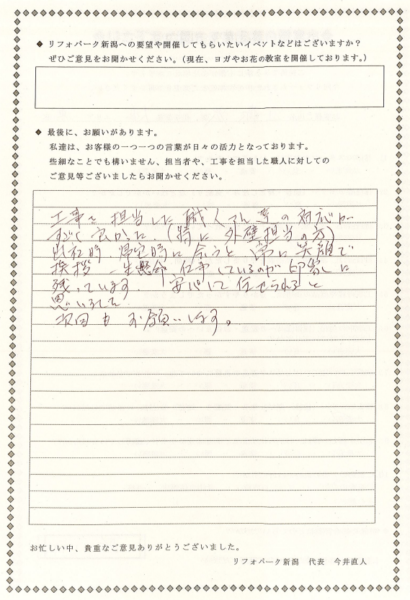 ◆ リフォパーク新潟への要望や開催してもらいたいイベントなどはございますか？
ぜひご意見をお聞かせください。（現在、ヨガやお花の教室を開催しております。）
◆ 最後に、お願いがあります。
私達は、お客様の一つ一つの言葉が日々の活力となっております。
些細なことでも構いません、担当者や、工事を担当した職人に対しての
ご意見等ございましたらお聞かせください。
工事を担当した職人さん等の対応が
すごく良かった（特に外壁担当の方）
出社時、帰宅時に会うと常に笑顔で
挨拶 一生懸命 仕事しているのが印象に
残っています 安心して任せられると
思いました
次回もお願いします。
お忙しい中、貴重なご意見ありがとうございました。
リフォパーク新潟 代表 今井直人